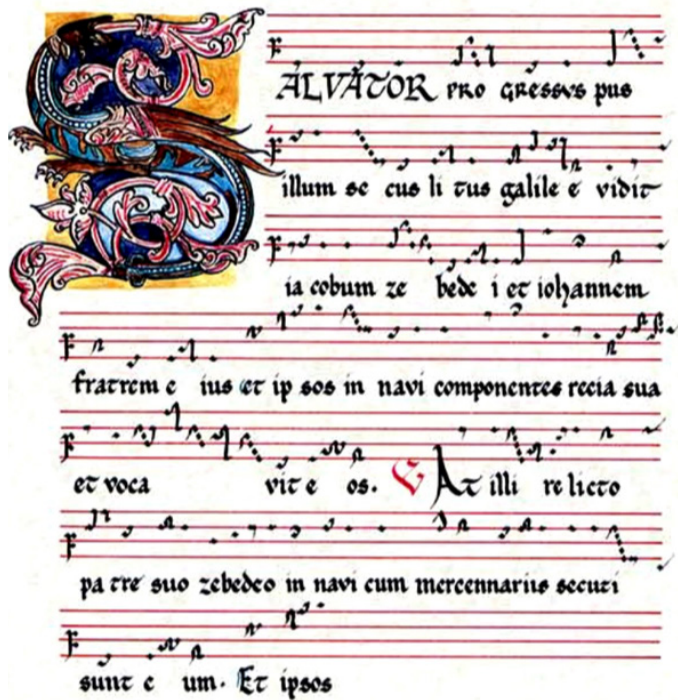 SALVATOR PRO GRESSVS pus
illum se cus li tus galile e vidit
ia cobum ze bede i et iohannem
fratrem e ius et ip sos in navi componentes recia sua
et voca vit e os. At illi re licto
pa tre suo zebedeo in navi cum mercennariis secuti
sunt e um. Et ipsos